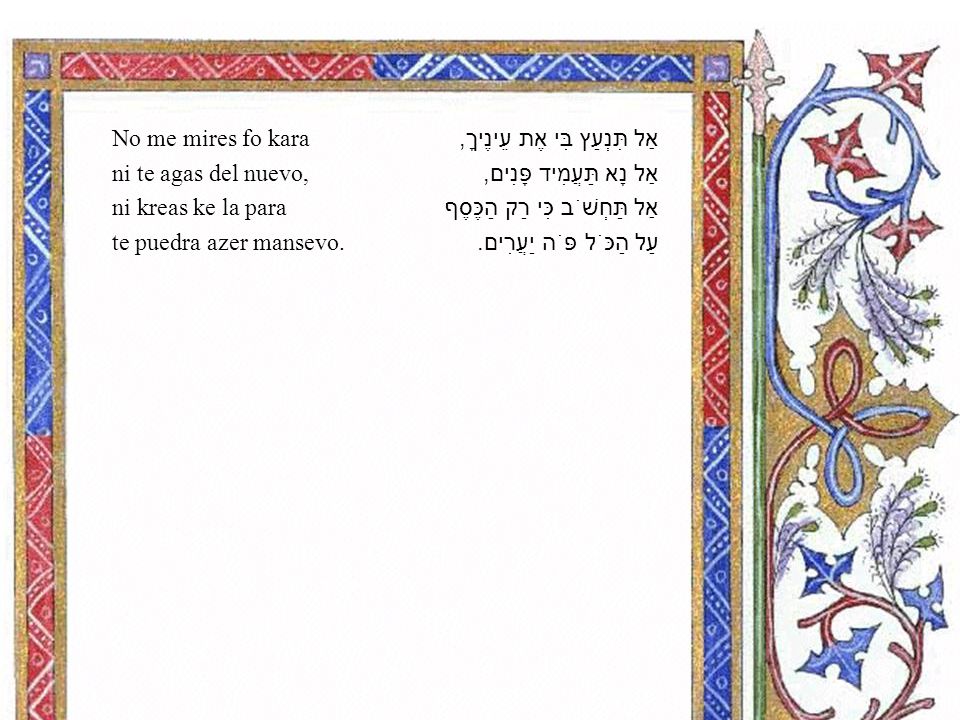 No me mires fo kara
ni te agas del nuevo,
ni kreas ke la para
te puedra azer mansevo.
אַל תִּנְעַץ בִּי אֶת עֵינֶיךָ,
אַל נָא תַּעֲמִיד פָּנִים,
אַל תַּחְשֹׁב כִּי רַק הַכֶּסֶף
עַל הַכֹּל פֹּה יַעֲרִים.